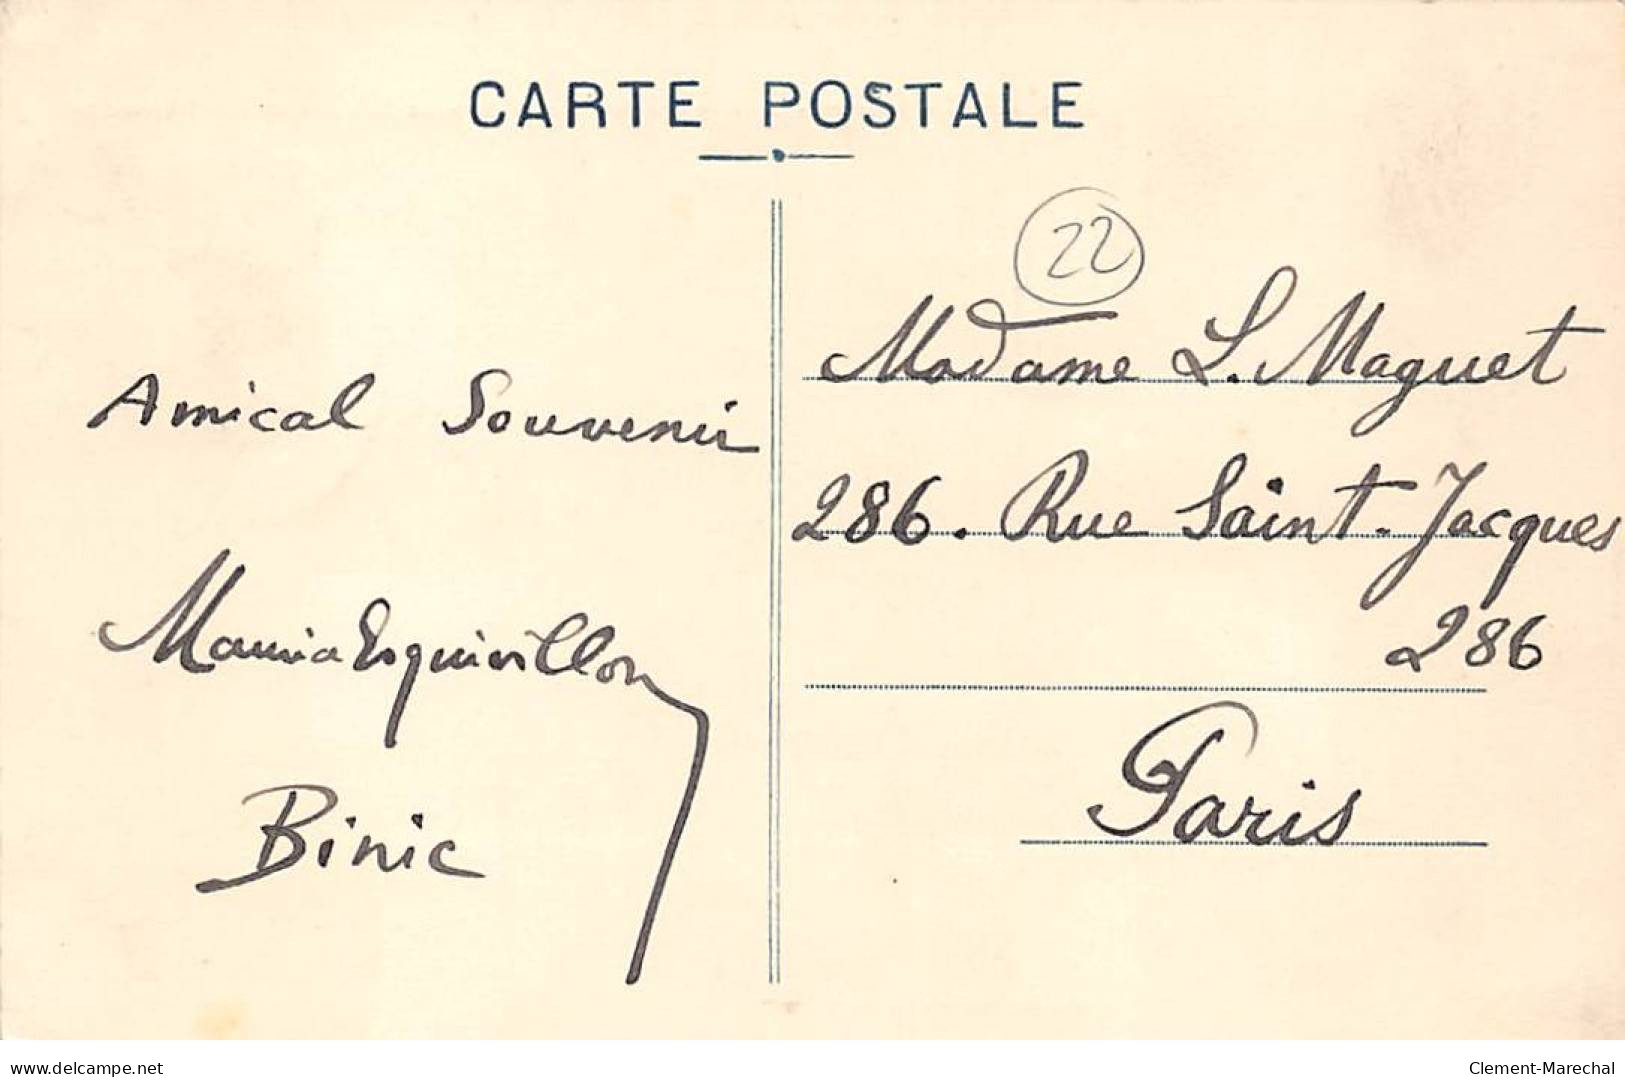 CARTE POSTALE
22
Amical Souvenir
Esquivillon
Binic
Madame L. Maguet
286. Rue Saint-Jacques
286
Paris
www.delcampe.net
Clement-Marechal